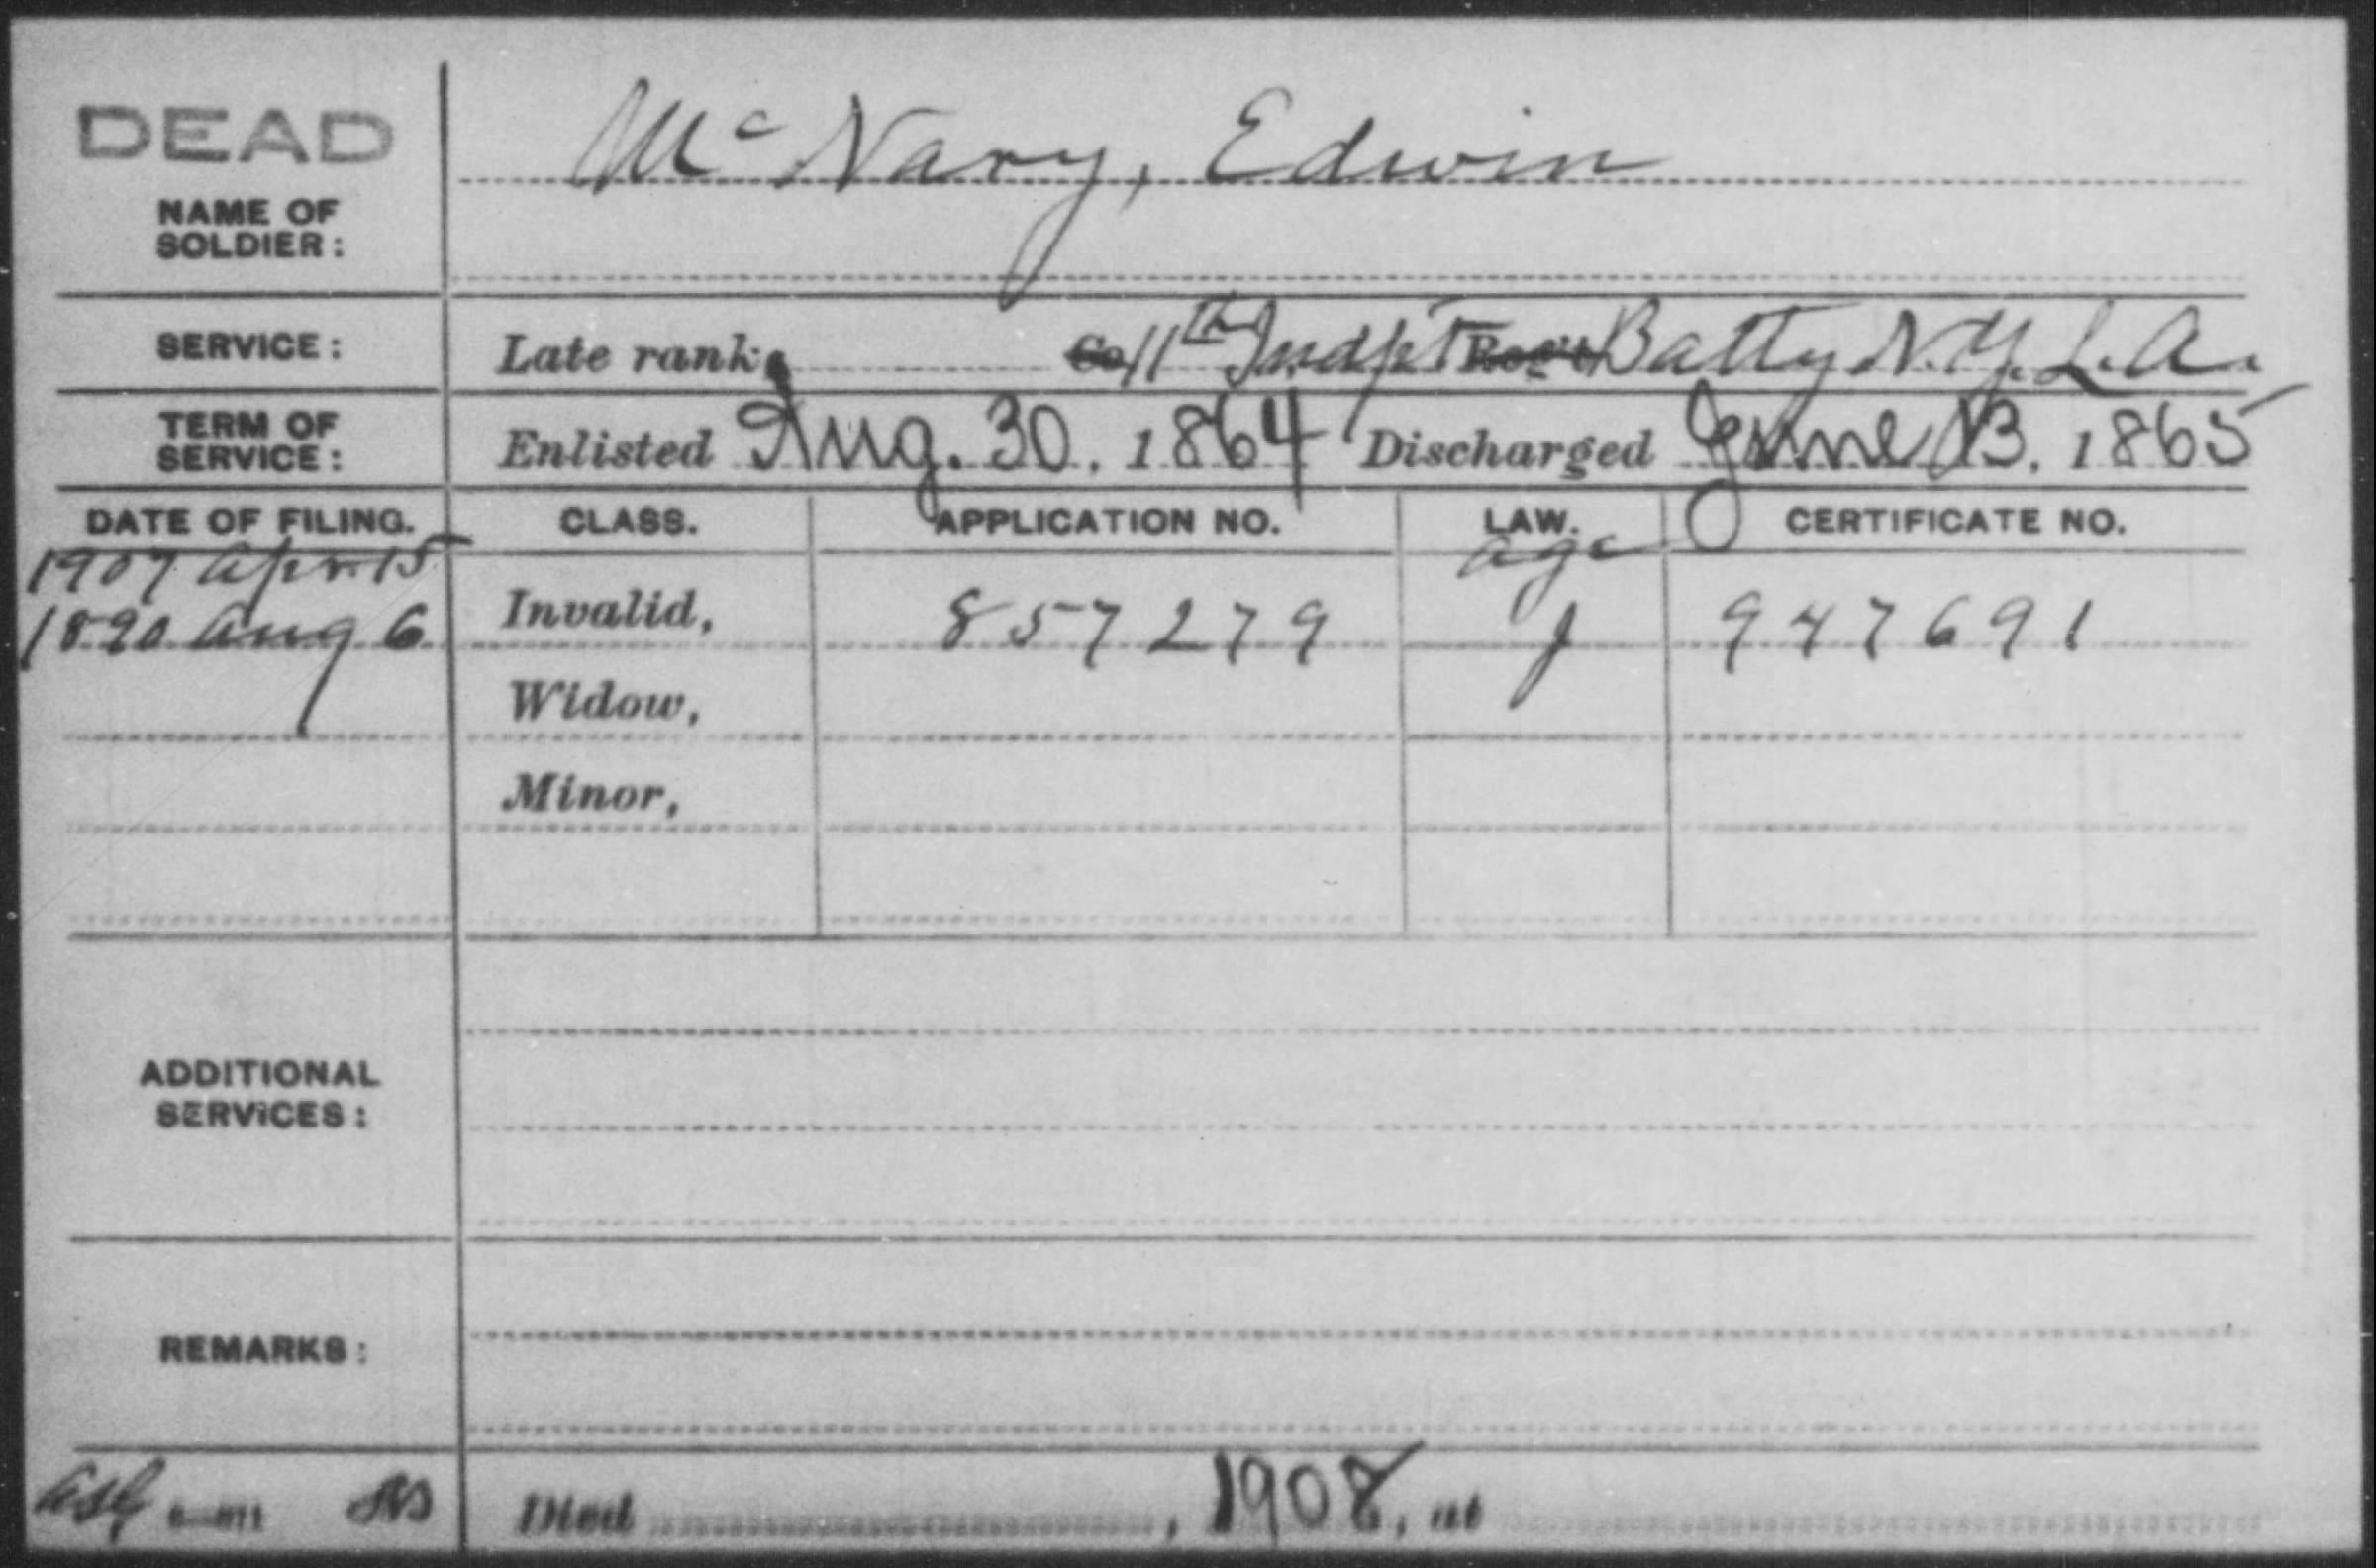 DEAD
McNary, Edwin
NAME OF
SOLDIER:
SERVICE: Late rank, Co. 11th Indpt Reg't Batty N.Y.L.A.
TERM OF
SERVICE: Enlisted Aug. 30, 1864 Discharged June 13, 1865
DATE OF FILING. CLASS. APPLICATION NO. LAW. CERTIFICATE NO.
1907 Apr. 15 age
1890 Aug 6 Invalid, 857279 J 947691
Widow,
Minor,
ADDITIONAL
SERVICES:
REMARKS:
Died , 1908, at